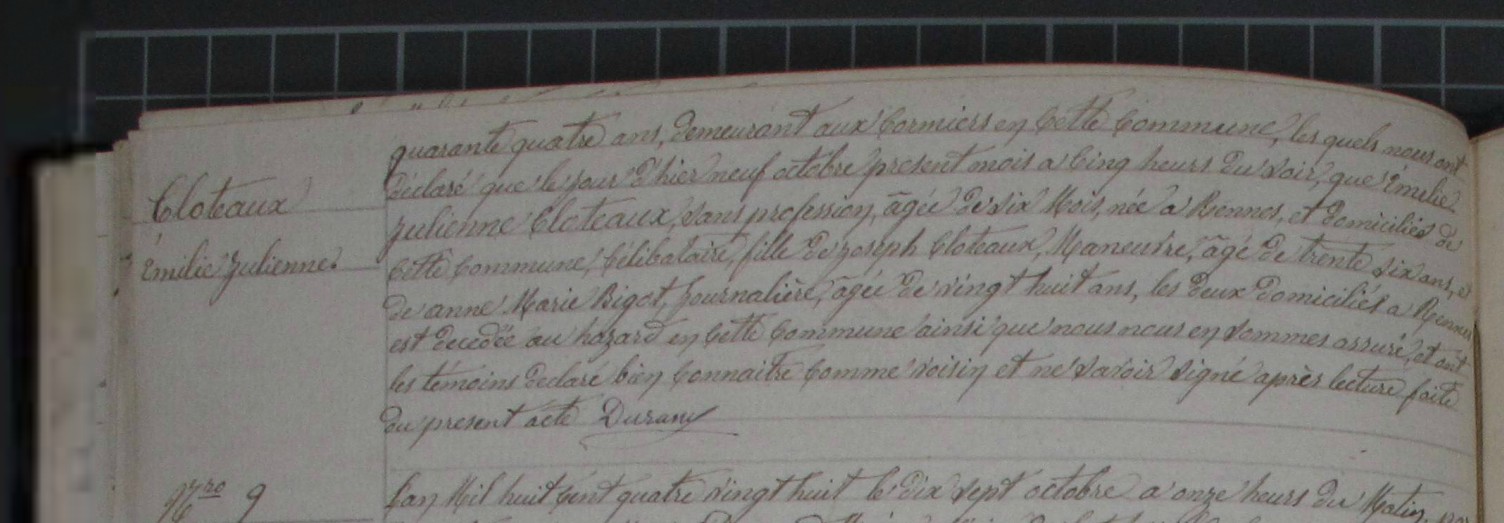 quarante quatre ans, demeurant aux Cormiers en Cette Commune, les quels nous ont
déclaré que le jour d'hier neuf octobre present mois a Cinq heurs du soir, que Émilie
Julienne Cloteaux, sans profession, âgée de six Mois, née a Rennes, et domiciliés de
Cette Commune, Célibataire, fille de Joseph Cloteaux, Maneuvre, âgé de trente six ans, et
de anne Marie Bigot, Journalière, âgée de vingt huit ans, les deux domiciliés a Rennes
est decedée au hazard en Cette Commune ainsi que nous nous en sommes assuré, et ont
les témoins declaré bien Connaitre Comme voisin et ne savoir signé après lecture faite
du present acte Durany
Cloteaux
Émilie Julienne.
Nro 9
L'an Mil huit Cent quatre vingt huit le dix sept octobre a onze heurs du Matin, par